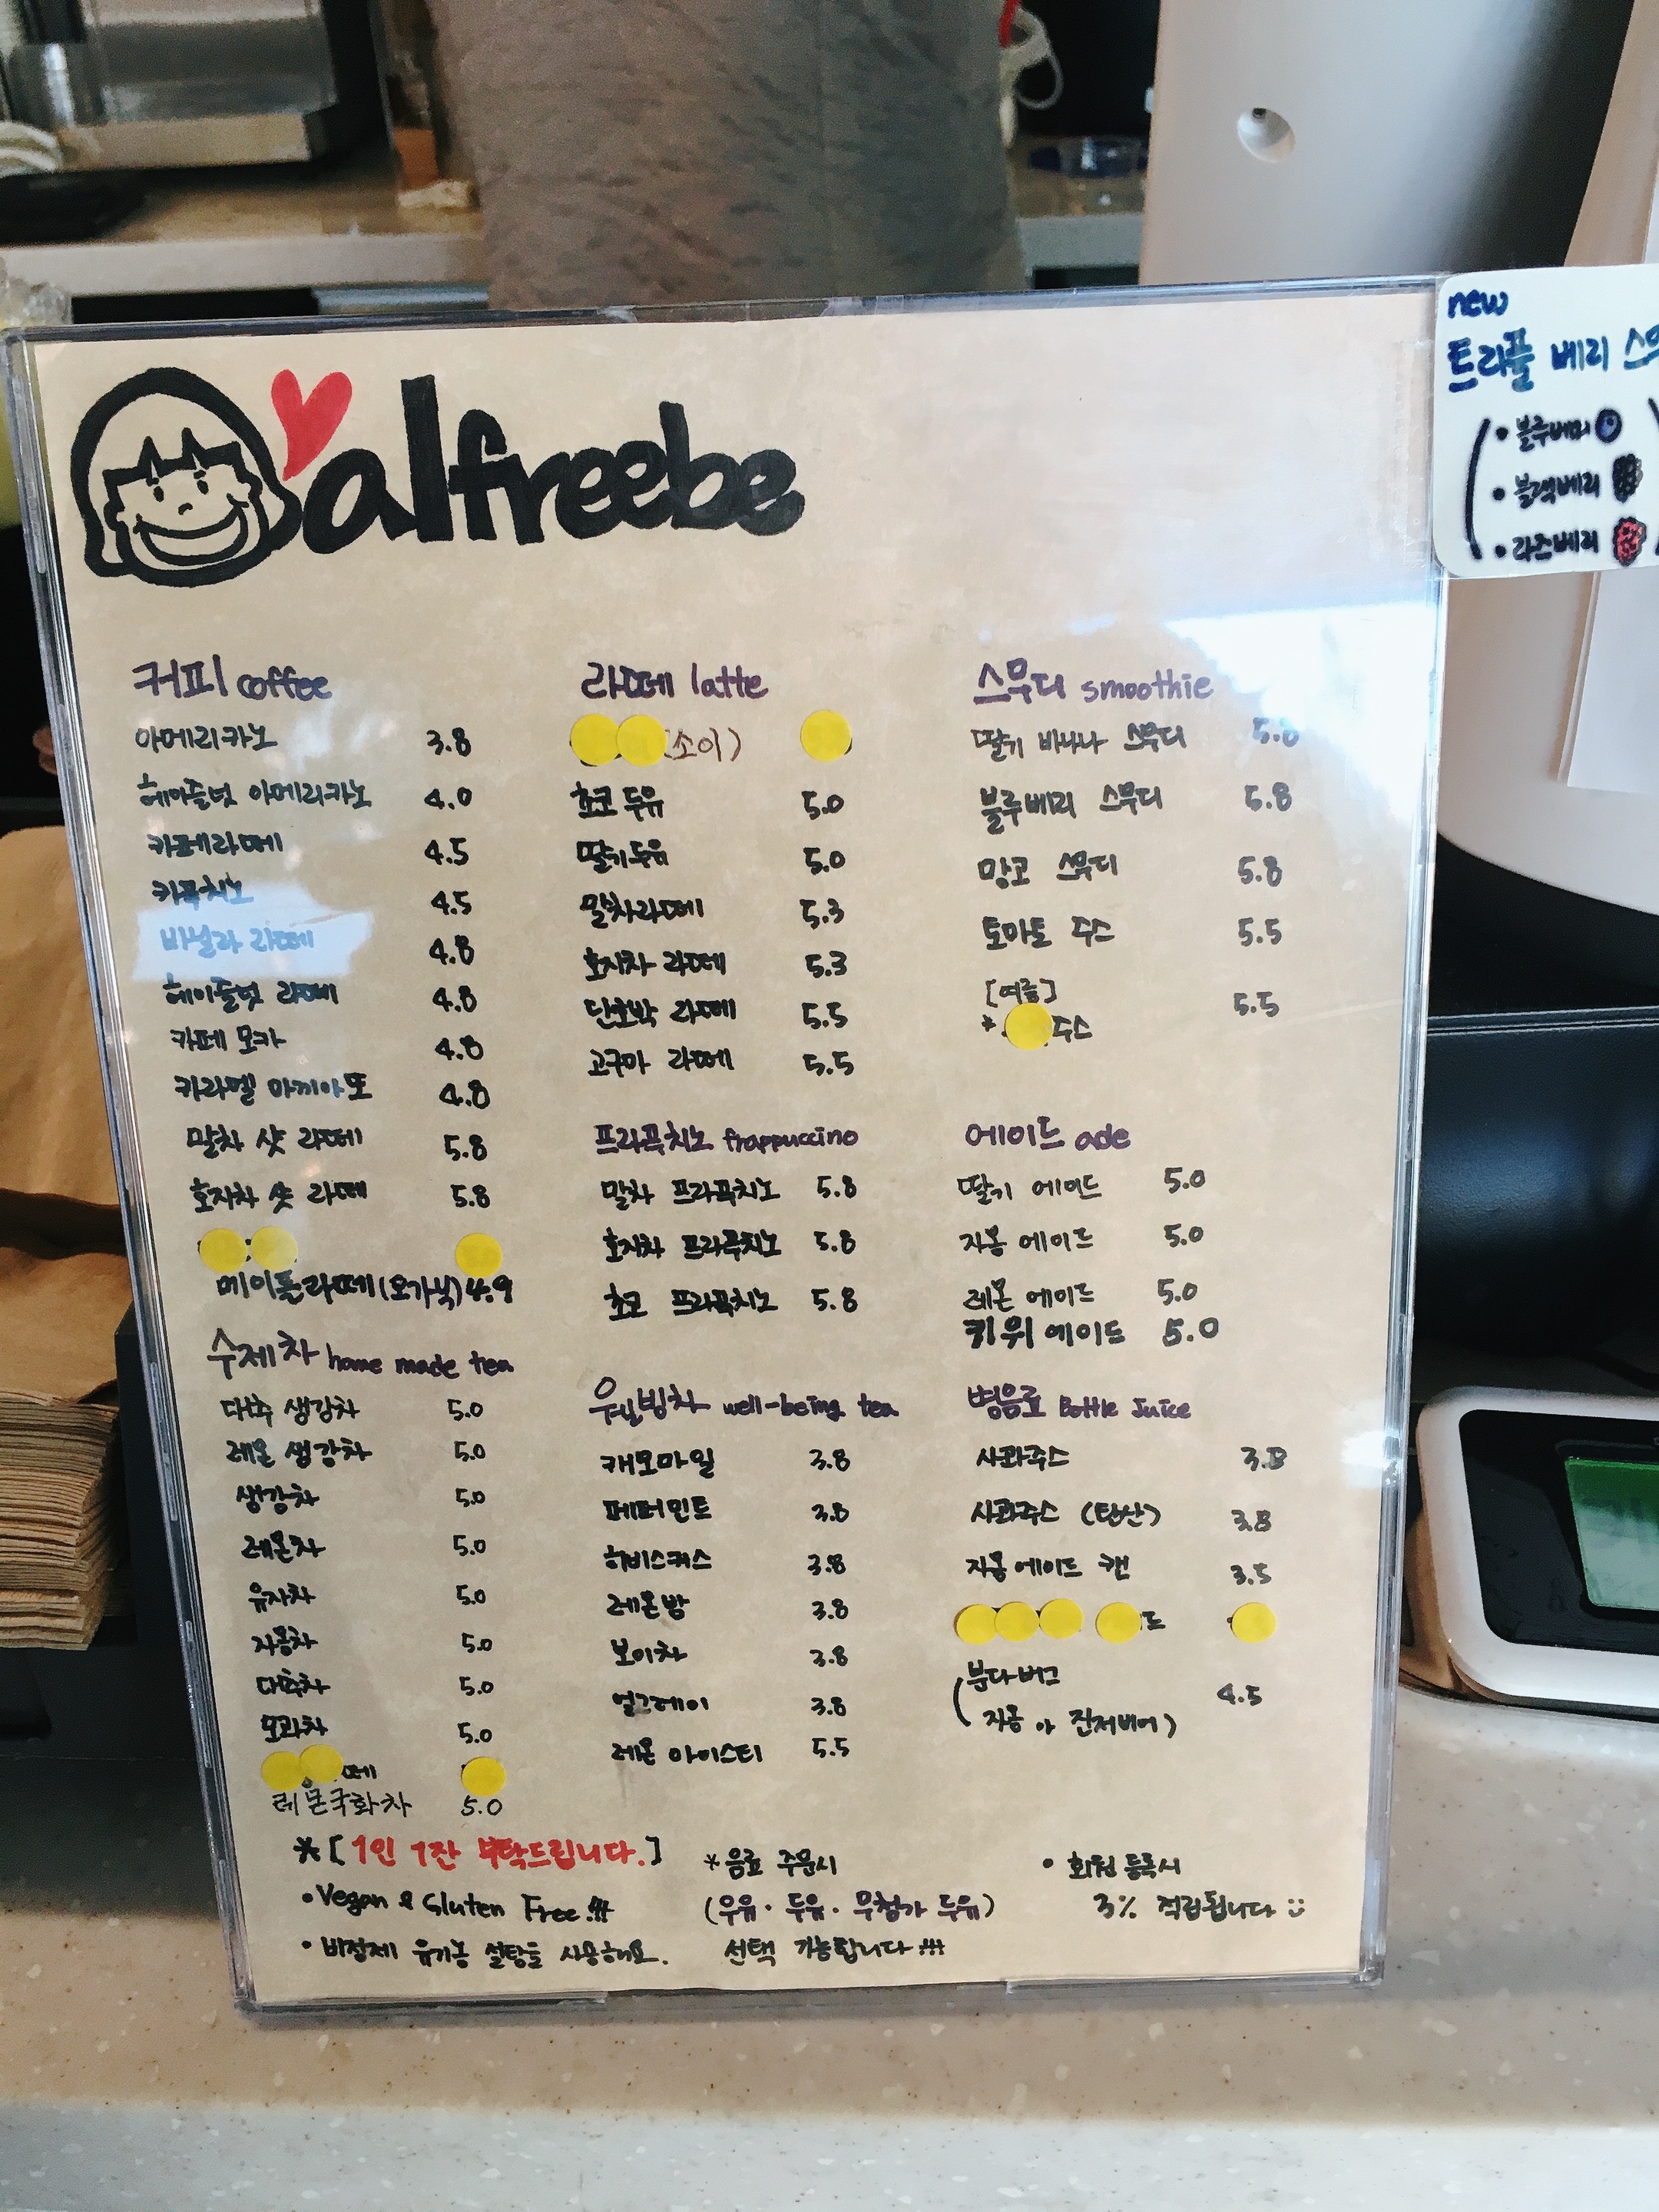 alfreebe
커피 coffee
아메리카노 3.8
헤이즐넛 아메리카노 4.0
카페라떼 4.5
카푸치노 4.5
바닐라 라떼 4.8
헤이즐넛 라떼 4.8
카페 모카 4.8
카라멜 마끼아또 4.8
말차 샷 라떼 5.8
호지차 샷 라떼 5.8
메이플라떼(오가닉) 4.9
수제차 home made tea
대추 생강차 5.0
레몬 생강차 5.0
생강차 5.0
레몬차 5.0
유자차 5.0
자몽차 5.0
대추차 5.0
모과차 5.0
떼
레몬국화차 5.0
라떼 latte
(소이)
초코 두유 5.0
딸기 두유 5.0
말차라떼 5.3
호지차 라떼 5.3
단호박 라떼 5.5
고구마 라떼 5.5
프라푸치노 frappuccino
말차 프라푸치노 5.8
호지차 프라푸치노 5.8
초코 프라푸치노 5.8
웰빙차 well-being tea
캐모마일 3.8
페퍼민트 3.8
히비스커스 3.8
레몬밤 3.8
보이차 3.8
얼그레이 3.8
레몬 아이스티 5.5
스무디 smoothie
딸기 바나나 스무디 5.8
블루베리 스무디 5.8
망고 스무디 5.8
토마토 주스 5.5
[여름]
* 주스 5.5
에이드 ade
딸기 에이드 5.0
자몽 에이드 5.0
레몬 에이드 5.0
키위 에이드 5.0
병음료 Bottle Juice
사과주스 3.8
사과주스 (탄산) 3.8
자몽에이드 캔 3.5
드
(분다버그
자몽 or 진저비어) 4.5
*[1인 1잔 부탁드립니다.]
• Vegan & Gluten Free!!!
• 비정제 유기농 설탕을 사용해요.
*음료 주문시
(우유· 두유· 무첨가 두유)
선택 가능합니다!!!
• 회원 등록시
3% 적립됩니다 :)
new
트리플 베리 스무
• 블루베리
• 블랙베리
• 라즈베리